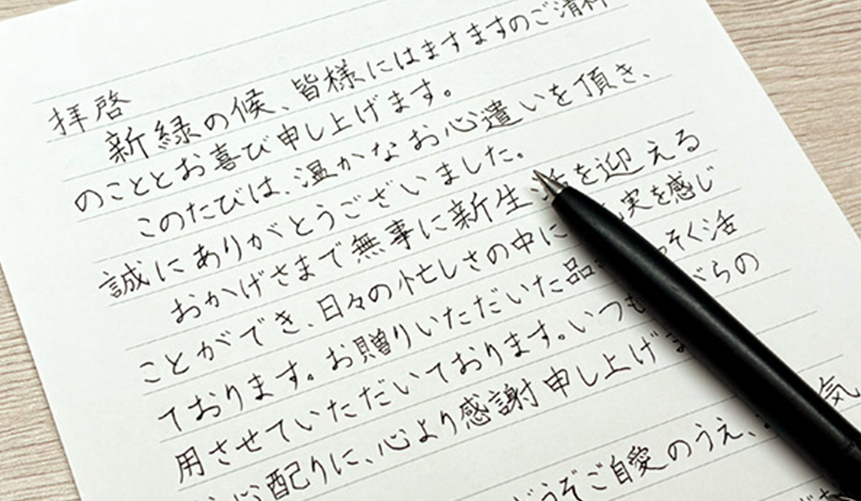 拝啓
新緑の候、皆様にはますますのご清祥
のこととお喜び申し上げます。
このたびは、温かなお心遣いを頂き、
誠にありがとうございました。
おかげさまで無事に新生活を迎える
ことができ、日々の忙しさの中に 実を感じ
ております。お贈りいただいた品 っそく活
用させていただいております。いつも がらの
心配りに、心より感謝申し上げま
うぞご自愛のうえ、 気